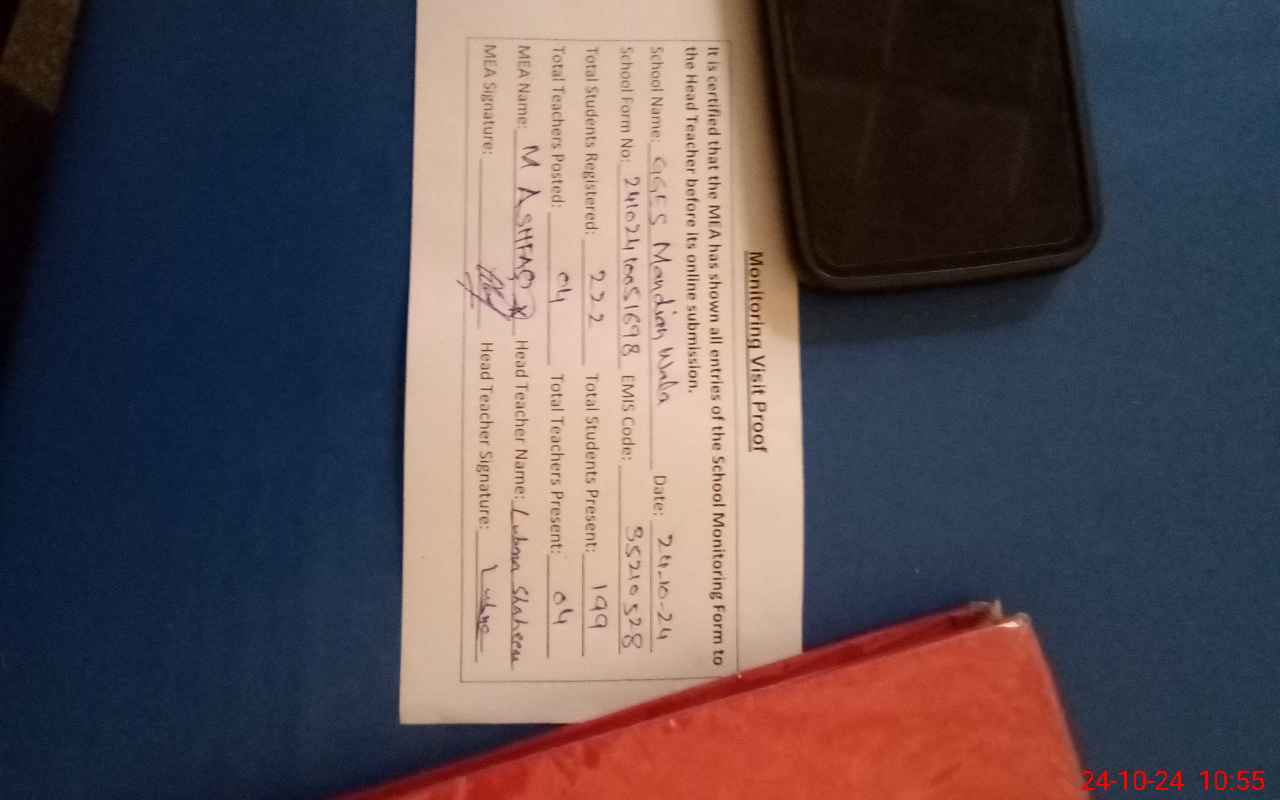 Monitoring Visit Proof
It is certified that the MEA has shown all entries of the School Monitoring Form to
the Head Teacher before its online submission.
School Name: GGES Mandian Wala Date: 24-10-24
School Form No: 24102410051698 EMIS Code: 35210528
Total Students Registered: 222 Total Students Present: 199
Total Teachers Posted: 04 Total Teachers Present: 04
MEA Name: M ASHFAQ Head Teacher Name: Lubna Shaheen
MEA Signature: Head Teacher Signature: Lubna
24-10-24 10:55